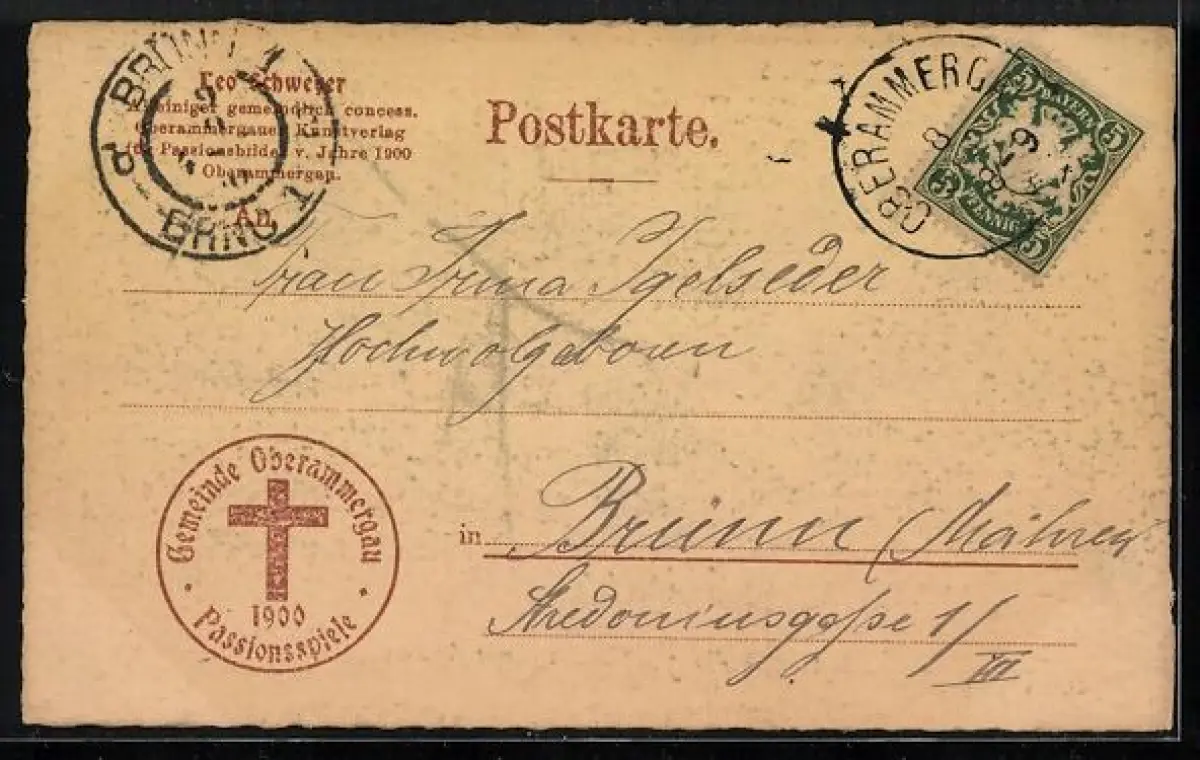 Leo Schweyer
Alleiniger gemeindlich concess.
Oberammergauer Kunstverlag
für Passionsbilder v. Jahre 1900
Oberammergau.
Postkarte.
BRÜNN 1
BRNO 1
OBERAMMERGAU
5 BAYERN 5
5 PFENNIG 5
An
Frau Irma Igelseder
Hochwolgeboren
in Brünn (Mähren
1/
III
Gemeinde Oberammergau
1900
Passionsspiele